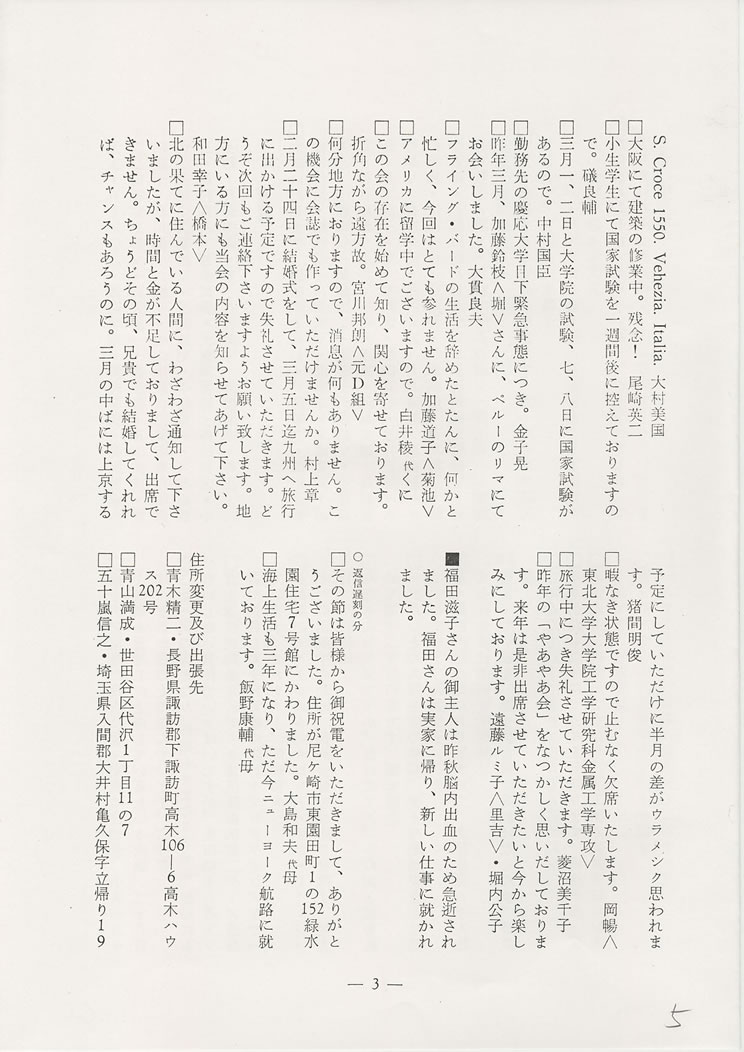 S. Croce 1550. Vehezia. Italia. 大村美国
□大阪にて建築の修業中。残念！　尾崎英二
□小生学生にて国家試験を一週間後に控えておりますの
で。礒良輔
□三月一、二日と大学院の試験、七、八日に国家試験が
あるので。中村国臣
□勤務先の慶応大学目下緊急事態につき。金子晃
□昨年三月、加藤鈴枝＜堀＞さんに、ペルーのリマにて
お会いしました。大貫良夫
□フライング・バードの生活を辞めたとたんに、何かと
忙しく、今回はとても参れません。加藤道子＜菊池＞
□アメリカに留学中でございますので。白井稜 代くに
□この会の存在を始めて知り、関心を寄せております。
折角ながら遠方故。宮川邦朗＜元D組＞
□何分地方におりますので、消息が何もありません。こ
の機会に会誌でも作っていただけませんか。村上章
□二月二十四日に結婚式をして、三月五日迄九州へ旅行
に出かける予定ですので失礼させていただきます。ど
うぞ次回もご連絡下さいますようお願い致します。地
方にいる方にも当会の内容を知らせてあげて下さい。
和田幸子＜橋本＞
□北の果てに住んでいる人間に、わざわざ通知して下さ
いましたが、時間と金が不足しておりまして、出席で
きません。ちょうどその頃、兄貴でも結婚してくれれ
ば、チャンスもあろうのに。三月の中ばには上京する
予定にしていただけに半月の差がウラメシク思われま
す。猪間明俊
□暇なき状態ですので止むなく欠席いたします。岡暢＜
東北大学大学院工学研究科金属工学専攻＞
□旅行中につき失礼させていただきます。菱沼美千子
□昨年の「やあやあ会」をなつかしく思いだしておりま
す。来年は是非出席させていただきたいと今から楽し
みにしております。遠藤ルミ子＜里吉＞・堀内公子
■福田滋子さんの御主人は昨秋脳内出血のため急逝され
ました。福田さんは実家に帰り、新しい仕事に就かれ
ました。
○ 返信遅刻の分
□その節は皆様から御祝電をいただきまして、ありがと
うございました。住所が尼ヶ崎市東園田町1の152緑水
園住宅7号館にかわりました。大島和夫 代母
□海上生活も三年になり、ただ今ニューヨーク航路に就
いております。飯野康輔 代母
住所変更及び出張先
□青木精二・長野県諏訪郡下諏訪町高木106―6高木ハウ
ス202号
□青山満成・世田谷区代沢1丁目11の7
□五十嵐信之・埼玉県入間郡大井村亀久保字立帰り19
― 3 ―
5